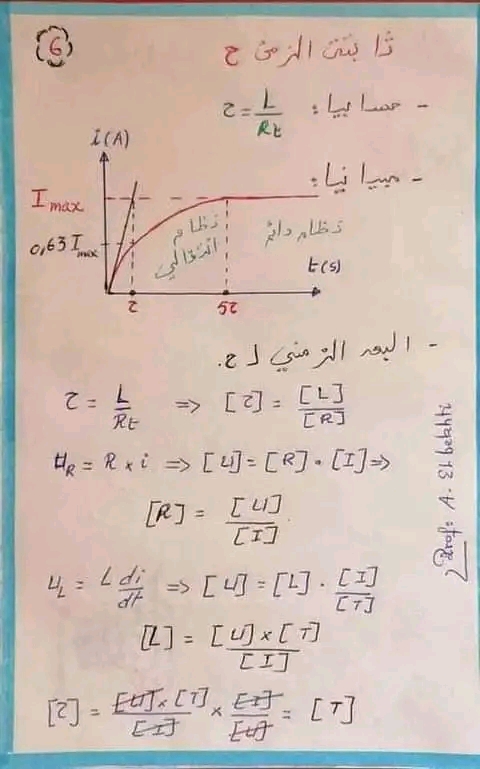 6
ثابتة الزمن τ
- حسابيا: τ = L/Rt
- مبيانيا:
i(A)
Imax
0,63 Imax
نظام انتقالي
نظام دائم
t(s)
τ 5τ
- البعد الزمني لـ τ.
τ = L/Rt => [τ] = [L]/[R]
UR = R × i => [U] = [R] · [I] =>
[R] = [U]/[I]
UL = L di/dt => [U] = [L] · [I]/[T]
[L] = [U]×[T]/[I]
[τ] = [U]×[T]/[I] × [I]/[U] = [T]
Prof: A.